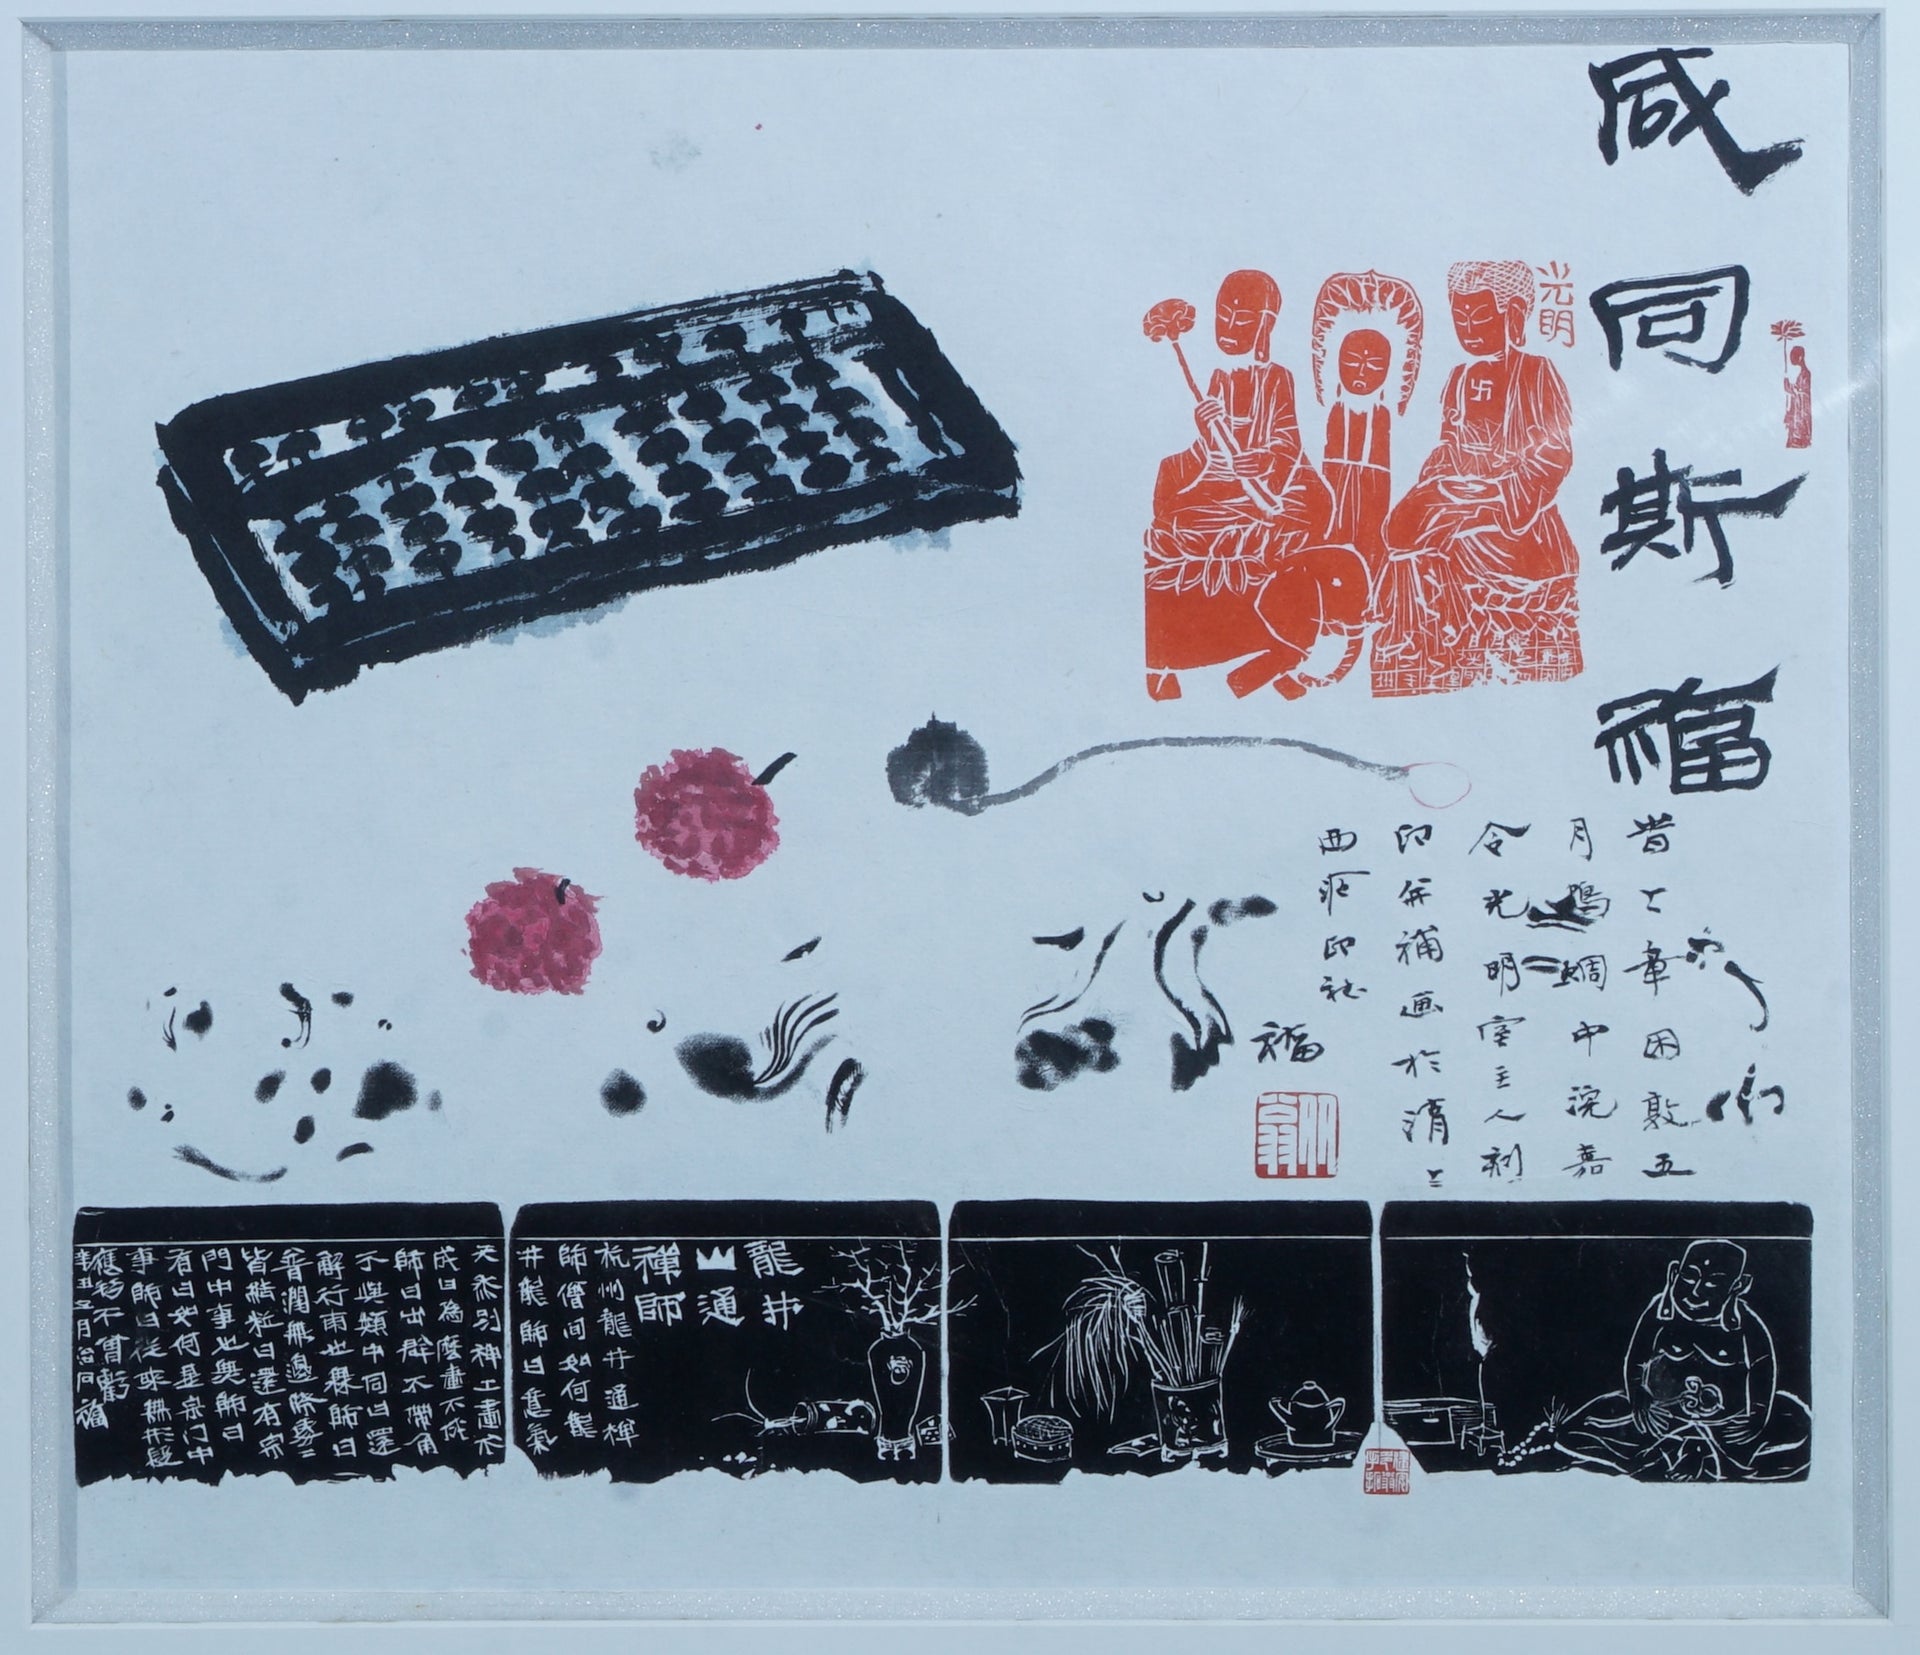 咸同斯福
光明
旹上章困敦五
月鳴蜩中浣嘉
令光明室主人刻
印并補画於
西泠印社
福
龍井
山通
禪師
杭州龍井通禪
師僧间如何龍
井龍師曰意氣
天然別神工畫不
成曰為麼畫不成
師曰出群不帶角
不與類中同曰還
解行雨也無師曰
普潤無邊際處二
皆結粒曰還有宗
門中事也無師曰
有曰如何是宗门中
事師曰從來無形段
應物不曾虧
辛丑五月 福